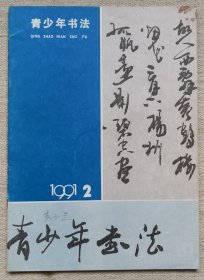 青少年书法
QING SHAO NIAN SHU FA
故人西辞黄鹤楼
烟花三月下扬州
孤帆远影碧空尽
1991 2
青少年书法